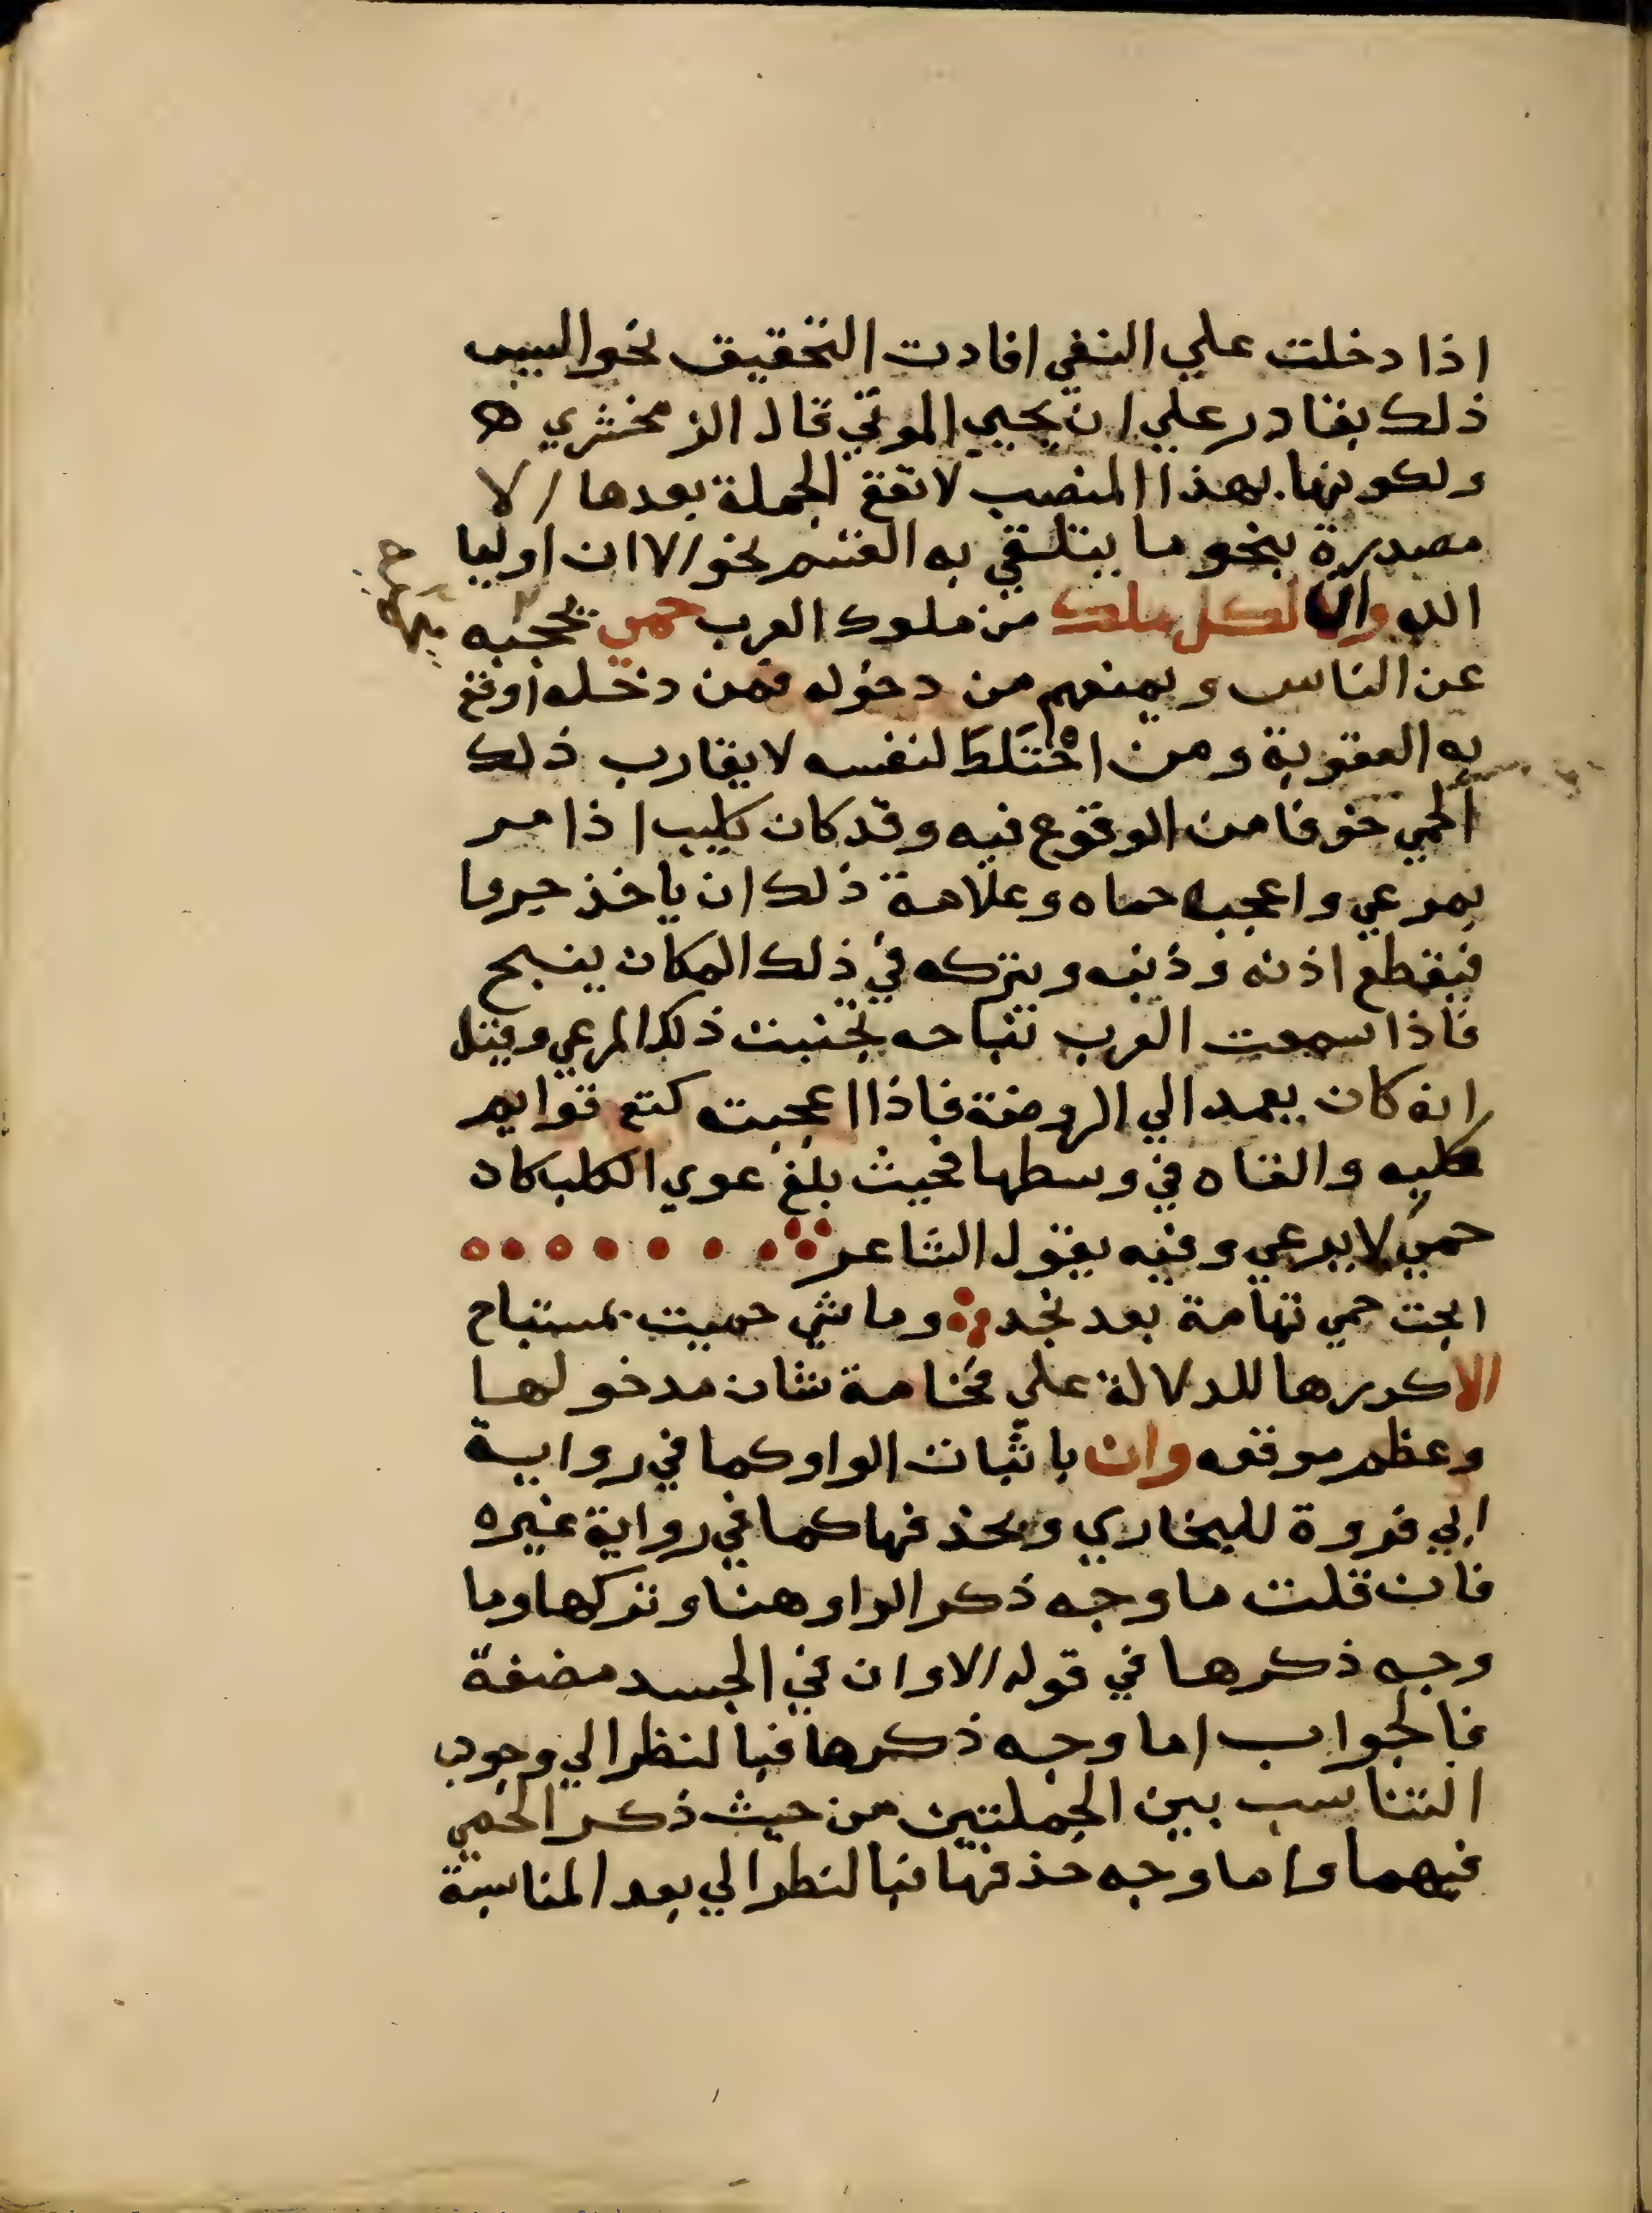 اذا دخلت علي النفي افادت التحقيق نحو اليس
ذلك بقادر علي ان يحيي الموتي قال الزمخشري
ولكونها بهذا المنصب لا تقع الجملة بعدها الا
مصدرة بنحو ما يتلقي به القسم نحو الا ان اوليا
الله وان لكل ملك من ملوك العرب حمي يحجبه
عن الناس ويمنعهم من دخوله فمن دخله اوقع
به العقوبة ومن احْتَلَطَ لنفسه لا يقارب ذلك
الحمي خوفا من الوقوع فيه وقد كان كليب اذا مر
بمرعي واعجبه حماه وعلامة ذلك ان ياخذ جروا
فيقطع اذنه وذنبه ويتركه في ذلك المكان ينبح
فاذا سمعت العرب نباحه تجنبت ذلك المرعي وقيل
انه كان يعمد الي الروضة فاذا اعجبته كتع قوايم
كلبه والقاه في وسطها فحيث بلغ عوي الكلب كان
حمي لا يرعي وفيه يقول الشاعر
ابحت حمي تهامة بعد نجد وما شي حميت بمستباح
الا كررها للدلالة علي فخامة شان مدخولها
وعظم موقعه وان باثبات الواو كما في رواية
ابي فروة للبخاري وبحذفها كما في رواية غيره
فان قلت ما وجه ذكر الواو هنا وتركها وما
وجه ذكرها في قوله الا وان في الجسد مضغة
فالجواب اما وجه ذكرها فبالنظر الي وجوب
التناسب بين الجملتين من حيث ذكر الحمي
فيهما واما وجه حذفها فبالنظر الي بعد المناسبة